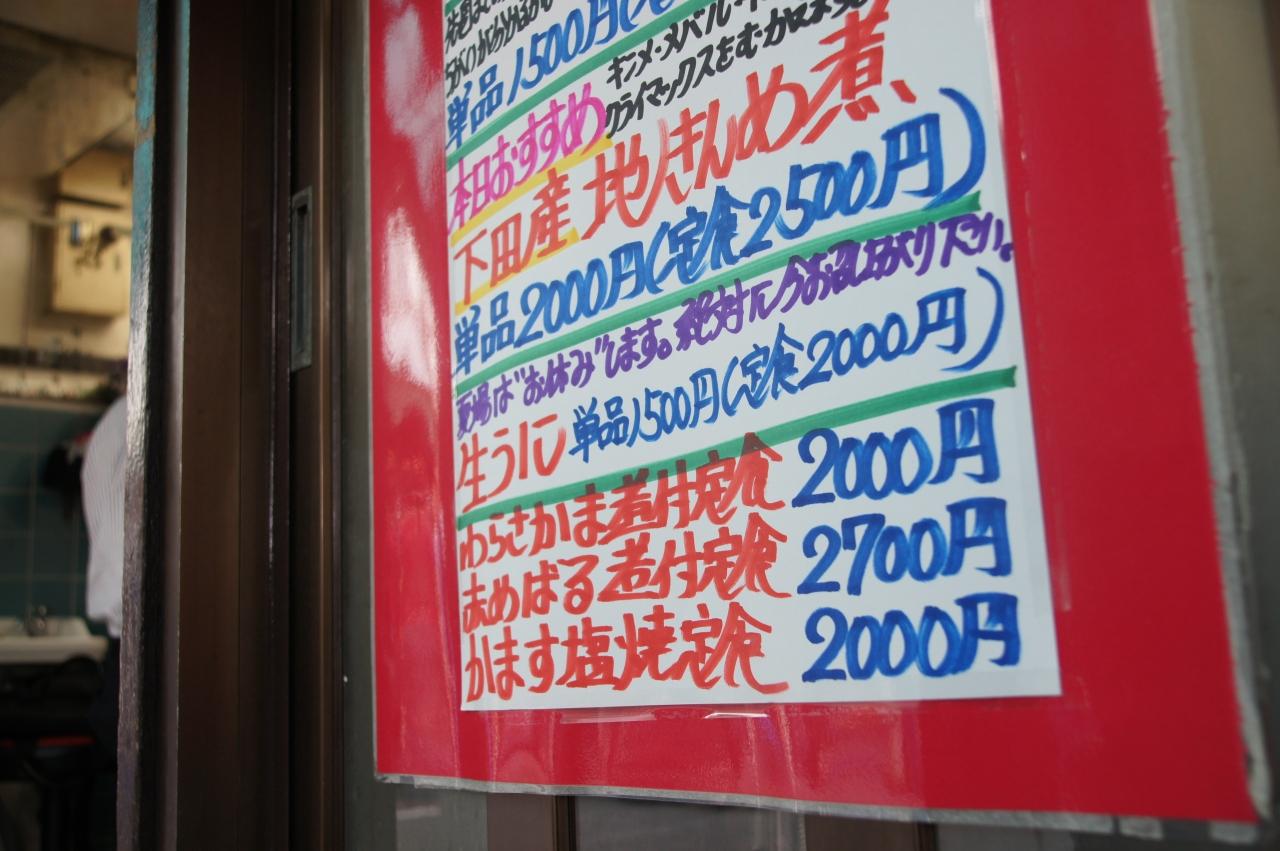 単品1500円(定
キンメ・メバル・キ
本日おすすめ
クライマックスをむかえ
下田産 地きんめ煮、
単品2000円(定食2500円)
夏場は"お休み"します。絶対に今お召上がり下さい。
生うに 単品1500円(定食2000円)
わらさかま煮付定食 2000円
赤めばる煮付定食 2700円
かます塩焼定食 2000円